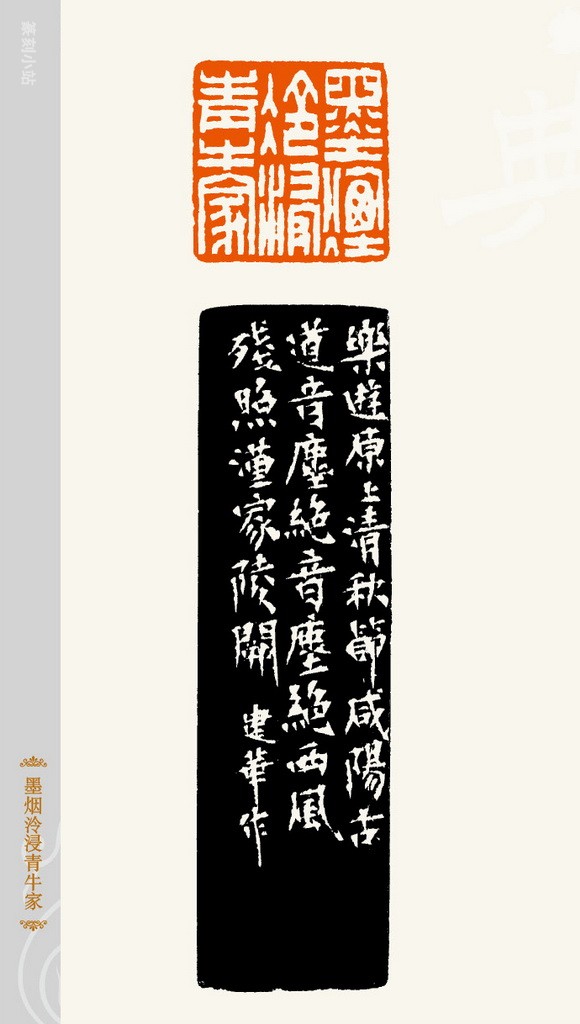 篆刻小站
墨煙
泠浸
青牛家
樂遊原上清秋節咸陽古
道音塵絕音塵絕西風
殘照漢家陵闕 建華作
墨烟泠浸青牛家
典